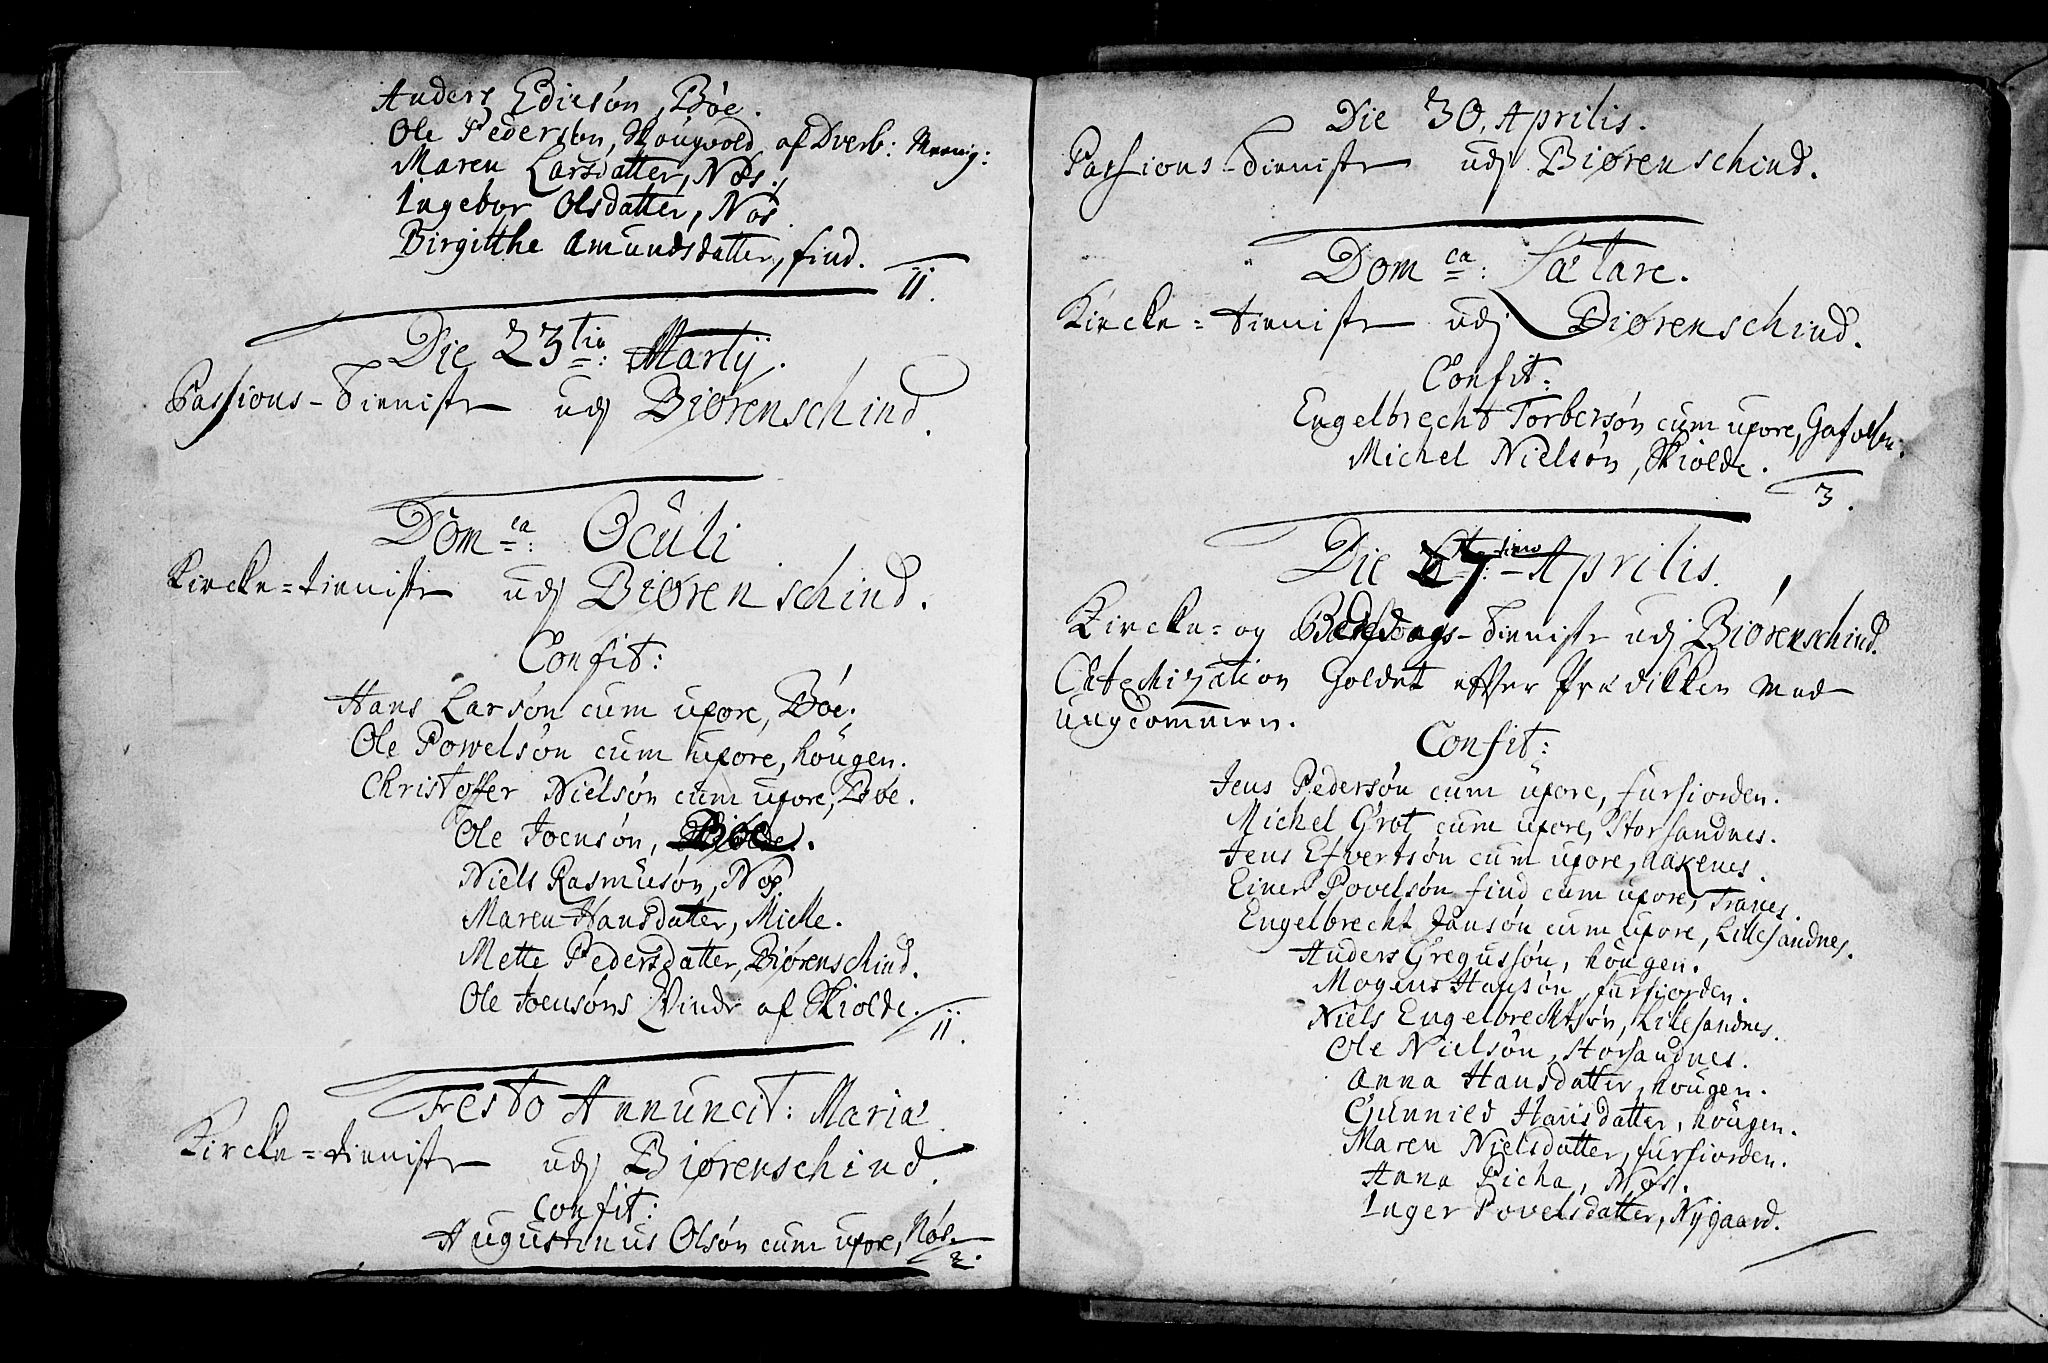 Anders Edisøn, Bøe.
Ole Pedersøn, Skougvold, af Dverb: Menig:
Maren Larsdatter, Nøs.
Ingebor Olsdatter, Nøs.
Birgitthe Amundsdatter, find.
11.
Die 23tio: Martij.
Passions-Tieniste udj Biørenschind.
Dom ca: Oculi
Kircke-tieniste udj Biørenschind.
Confit:
Hans Larsøn cum uxore, Bøe.
Ole Powelsøn cum uxore, hougen.
Christoffer Nielsøn cum uxore, Bøe.
Ole Joensøn,
Niels Rasmusøn, Nøs.
Maren Hansdatter, Micke.
Mette Pedersdatter, Biørenschind.
Ole Joensøns Qvinde af Skiolde.
11.
Festo Annuncit: Mariæ.
Kircke-tieniste udj Biørenschind.
Confit:
Augustinus Olsøn cum uxore, Nøs.
2.
Die 30. Aprilis.
Passions-Tieniste udj Biørenschind.
Dom ca: Lætare.
Kircke-tieniste udj Biørenschind.
Confit:
Engelbrecht Torbersøn cum uxore,
Michel Nielsøn, Skiolde.
3.
Die 7timo Aprilis.
Kircke- og Bededags-Tieniste udj Biørenschind.
Catechization holdet efter Prædikken med
ungdommen.
Confit:
Jens Pedersøn cum uxore, furfiorden.
Michel Grot cum uxore, Storsandnes.
Jens Efvertsøn cum uxore, Aakenes.
Einer Povelsøn find cum uxore, Tranes.
Engelbrecht Jonsøn cum uxore, Lillesandnes.
Anders Gregussøn, hougen.
Mogens Hansøn, furfiorden.
Niels Engelbrechtsøn, Lillesandnes.
Ole Nielsøn, Storsandnes.
Anna Hansdatter, hougen.
Gunnild Hansdatter, hougen.
Maren Nielsdatter, furfiorden.
Anna Picha, Nøs.
Inger Povelsdatter, Nygaard.